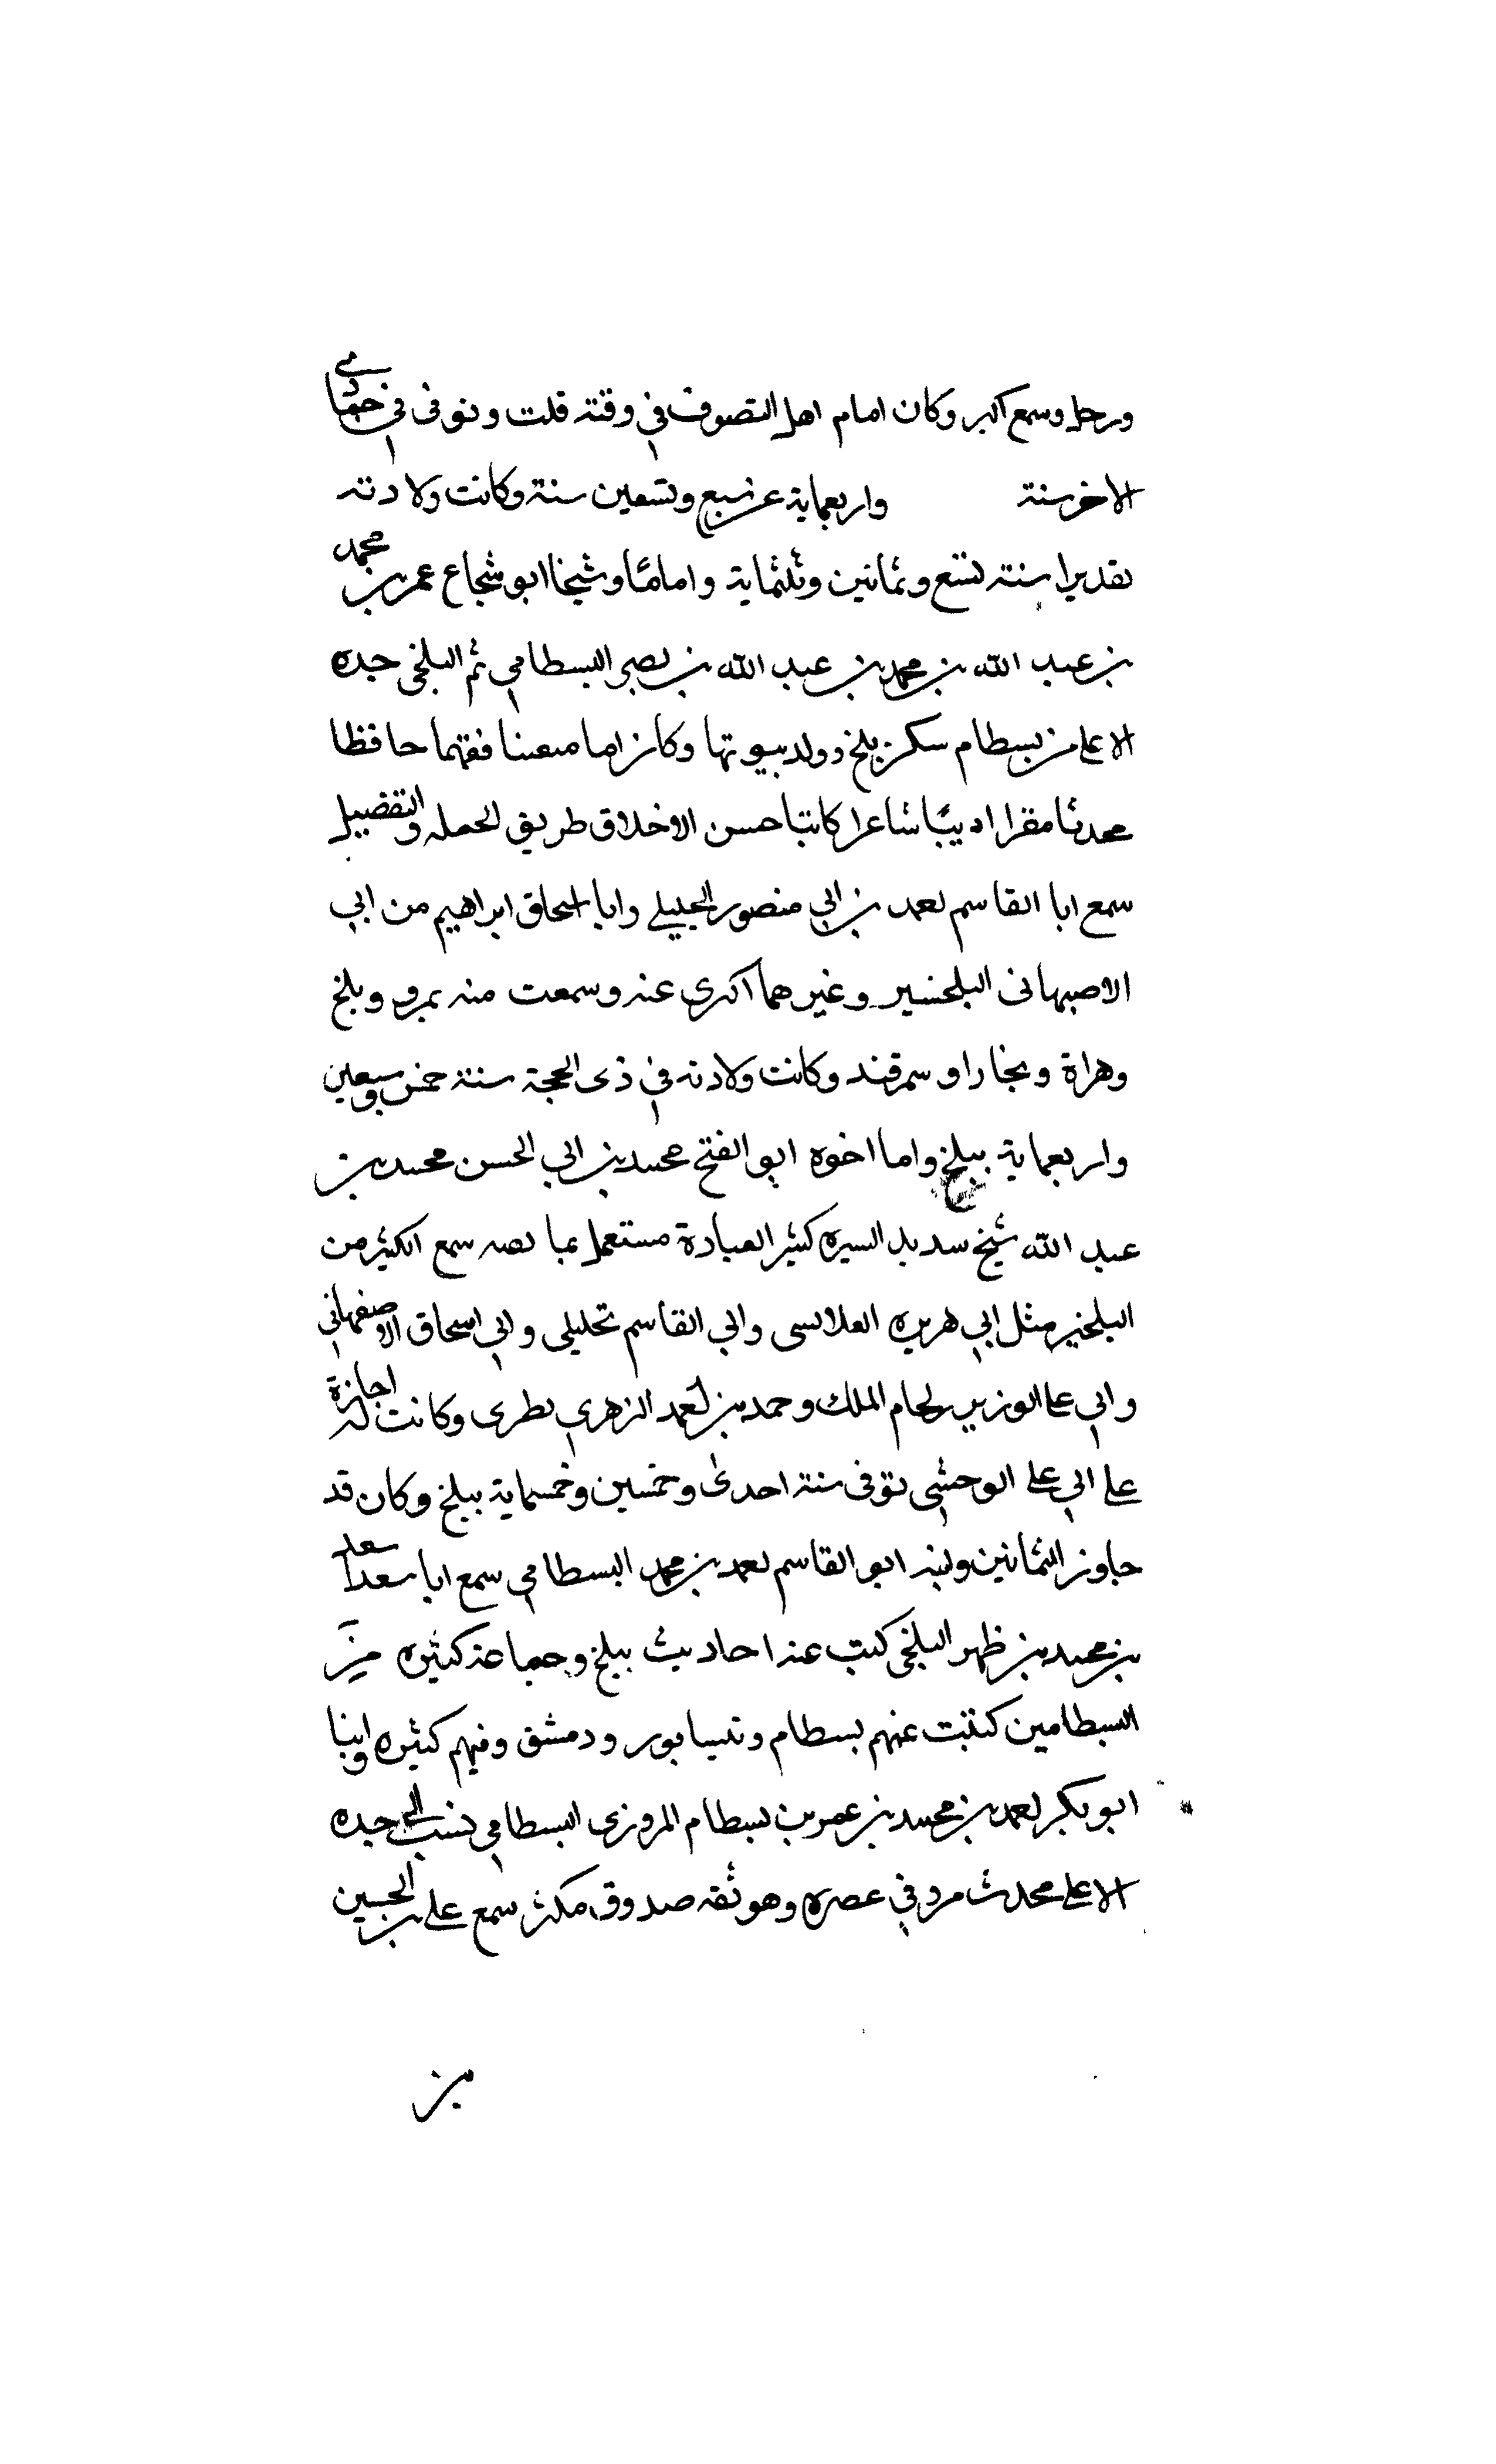 ورحل وسمع اكبر وكان امام اهل التصوف في وقته قلت وتوفى في جمادي
الاخر سنة واربعماية عن سبع وتسعين سنة وكانت ولادته
تقديرا سنة تسع وثمانين وثلثماية وامامنا وشيخنا ابو شجاع عمر بن محمد
بن عبد الله بن محمد بن عبد الله بن نصر البسطامي ثم البلخي جده
الاعلى من بسطام سكن بلخ وولد بيوتها وكان اماما فقيها حافظا
محدثا مقرا اديبا شاعرا كاتبا حسن الاخلاق طريق الجمله والتفضيل
سمع ابا القاسم احمد بن ابي منصور الخليلي وابا اسحاق ابراهيم من ابي
الاصبهاني البلخيين وغيرهما اكثرى عنه وسمعت منه بمرو وبلخ
وهراة وبخارا وسمرقند وكانت ولادته في ذى الحجة سنة خمس وسبعين
واربعماية ببلخ واما اخوه ابو الفتح محمد بن ابي الحسن محمد بن
عبد الله شيخ سديد السيره كثير العبادة مستعمل بما نصه سمع الكثير من
البلخين مثل ابي هريره القلانسى وابي القاسم تحليلي وابي اسحاق الاصفهاني
وابي على الوزير لحام الملك وحمد بن احمد الزهري بطرى وكانت له اجازة
على ابي على الوحشي توفى سنة احدى وخمسين وخمسماية ببلخ وكان قد
جاوز الثمانين وابنه ابو القاسم احمد بن محمد البسطامي سمع ابا سعد اسعد
بن محمد بن ظهير البلخى كتب عنه احاديث ببلخ وجماعة كثيره من
البسطامين كتبت عنهم بسطام ونيسابور ودمشق وفيهم كثيره وابنا
ابو بكر احمد بن محمد بن عمر بن بسطام المروزى البسطامي نسب الى جده
الاعلى محدث مرو في عصره وهو ثقه صدوق مكثر سمع على بن الحسين
بن